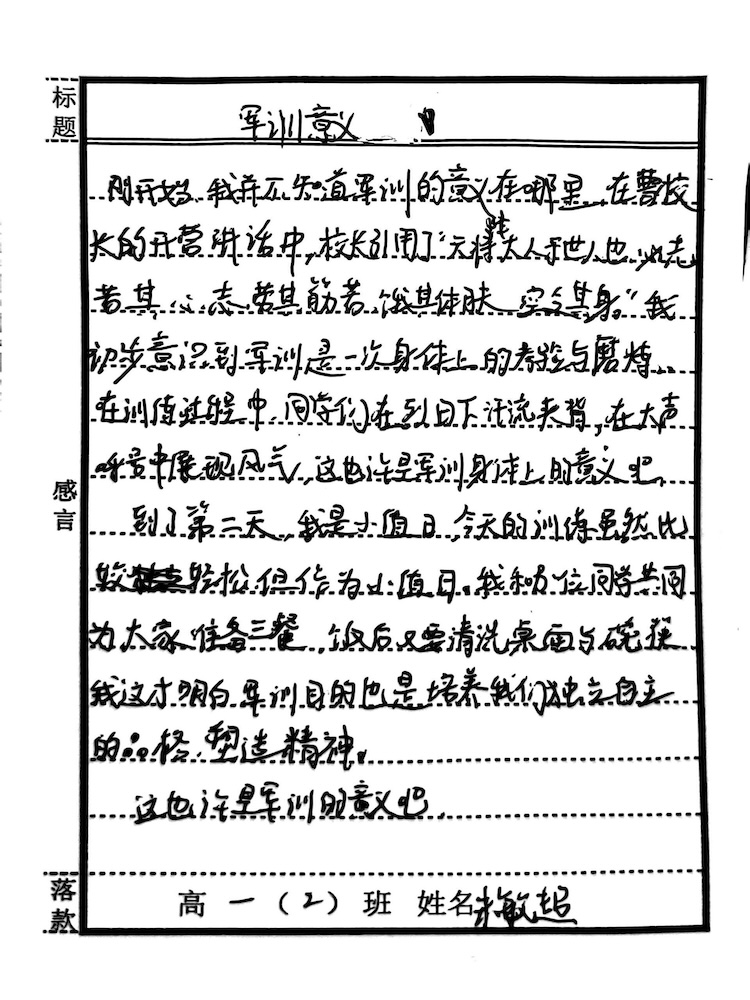 标题
军训意义
刚开始,我并不知道军训的意义在哪里,在曹校
长的开营讲话中,校长引用了“天将降大人于世人也,必先
苦其心志劳其筋苦,饿其体肤,空乏其身。”我
初步意识到军训是一次身体上的考验与磨炼,
在训练过程中,同学们在烈日下汗流夹背,在大声
中展现风气,这也许是军训身体上的意义吧,
感言
到了第二天,我是小值日,今天的训练虽然比
较轻松但作为小值日,我和位同学共同
为大家准备三餐,饭后又要清洗桌面与碗筷
我这才明白军训目的也是培养我们独立自主
的品格,塑造精神。
这也许是军训的意义吧,
落款
高一(2)班 姓名 敏超